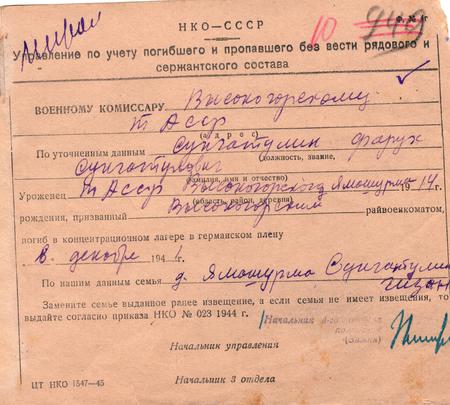 НКО—СССР
10 940 Ф. № 4г
Управление по учету погибшего и пропавшего без вести рядового и
сержантского состава
ВОЕННОМУ КОМИССАРУ Высокогорскому
т АССР
(адрес)
По уточненным данным Сунгатулин Фарух
(должность, звание,
Сунгатулович
фамилия, имя и отчество)
Уроженец т АССР Высокогорского Ямашурма 1914 г.
(область, район, деревня)
рождения, призванный Высокогорским райвоенкоматом,
погиб в концентрационном лагере в германском плену
в декабре 194
По нашим данным семья д. Ямашурма Сунгатулин
Замените семье выданное ранее извещение, а если семья не имеет извещения, то
выдайте согласно приказа НКО № 023 1944 г.
Начальник
Начальник управления
Начальник 3 отдела
ЦТ НКО 1547—45